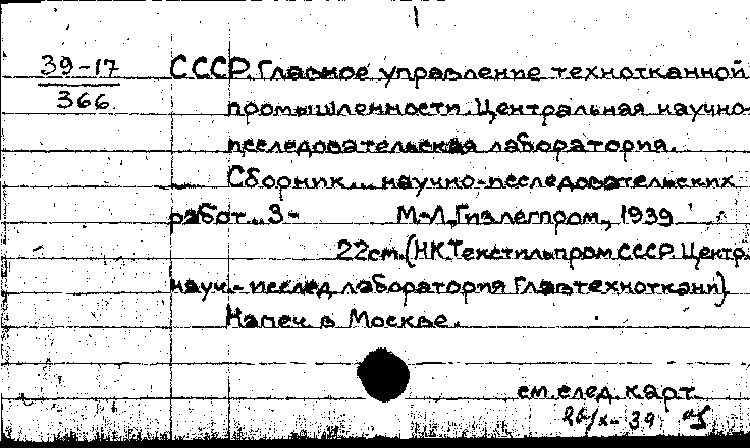 39-17 СССР. Главное управление технотканной
366 промышленности. Центральная научно-
исследовательская лаборатория.
Сборник... научно-исследовательских
работ.. 3- М-Л, Гизлегпром, 1939
22см. (НК Текстильпром СССР. Центр.
науч.- исслед. лаборатория Главтехноткани)
Напеч. в Москве.
см. след. карт.
26/X- 39